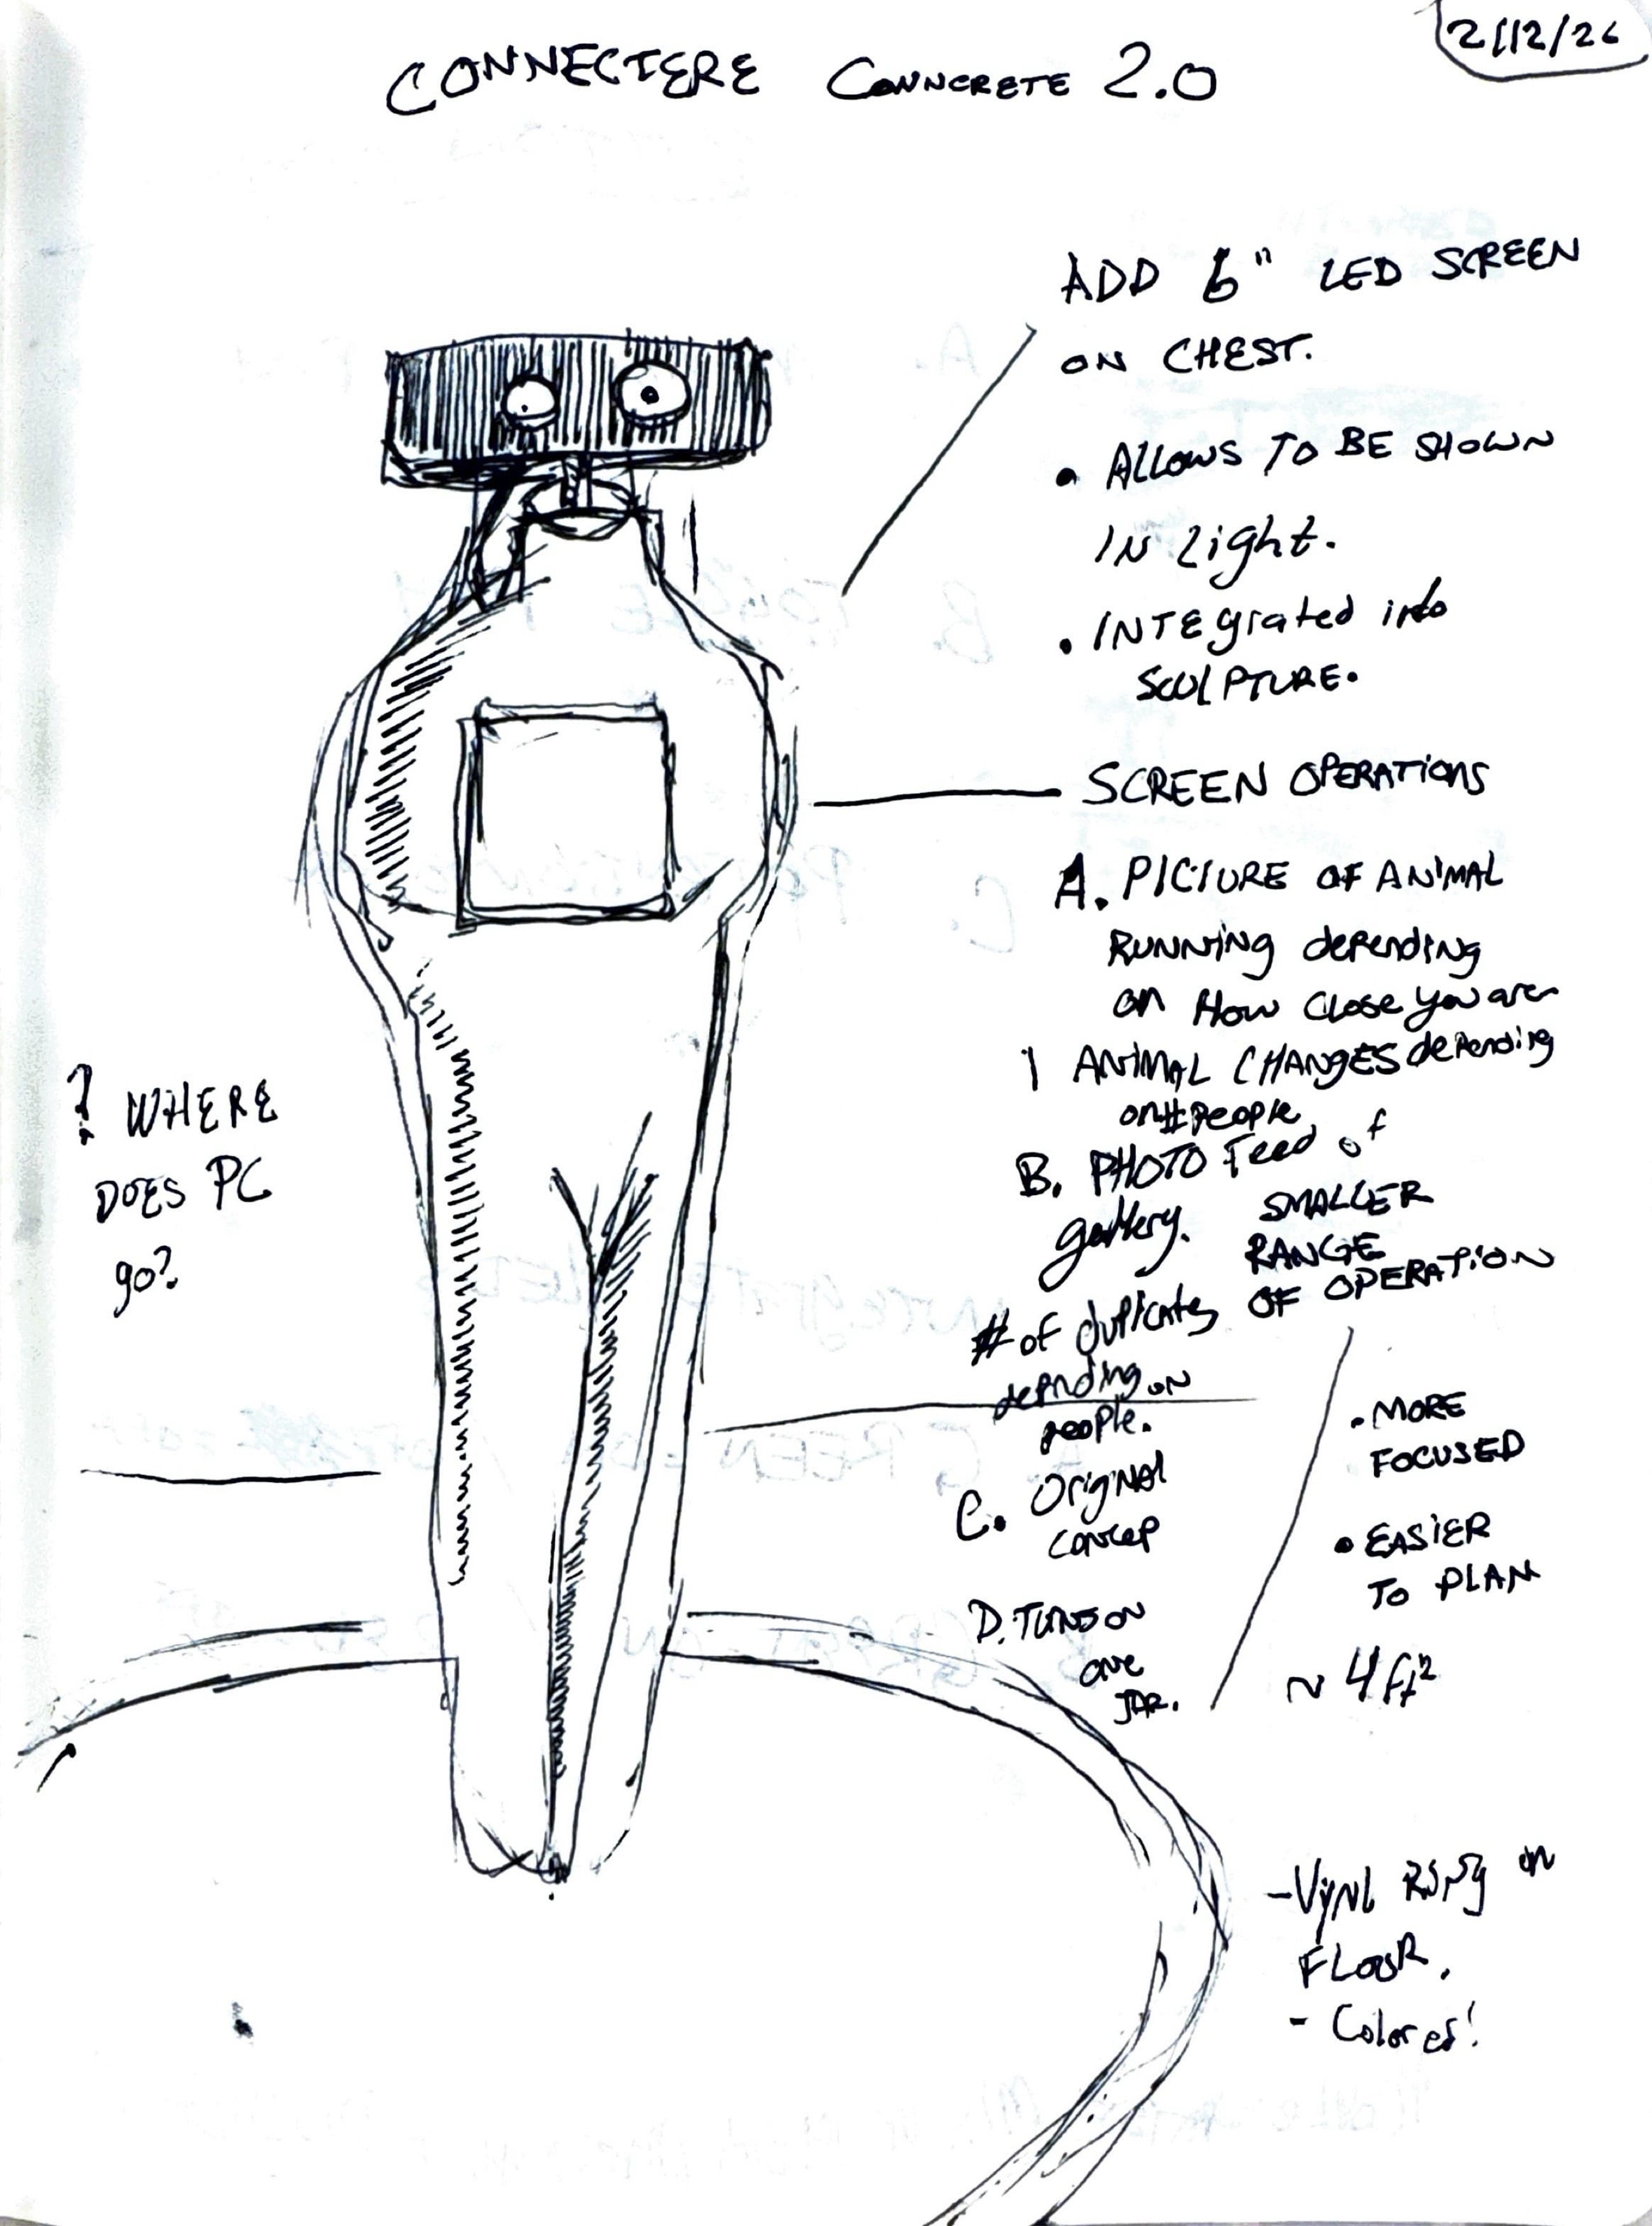 2/12/26
CONNECTERE CONNCRETE 2.0
ADD 6" LED SCREEN
ON CHEST.
• ALLOWS TO BE SHOWN
IN Light.
• INTEgrated into
SCULPTURE.
SCREEN OPERATIONS
A. PICTURE OF ANIMAL
RUNNING depending
on How Close you are
1 ANIMAL CHANGES depending
on # people
B. PHOTO Feed of
gallery.
# of duplicates
depnding on
people.
C. Original
concep
D. TUNDON
one
JAR.
SMALLER
RANGE
OF OPERATION
• MORE
FOCUSED
• EASIER
TO PLAN
~ 4ft²
- Vynl Ring on
FLOOR.
- Colored!
? WHERE
DOES PC
go?